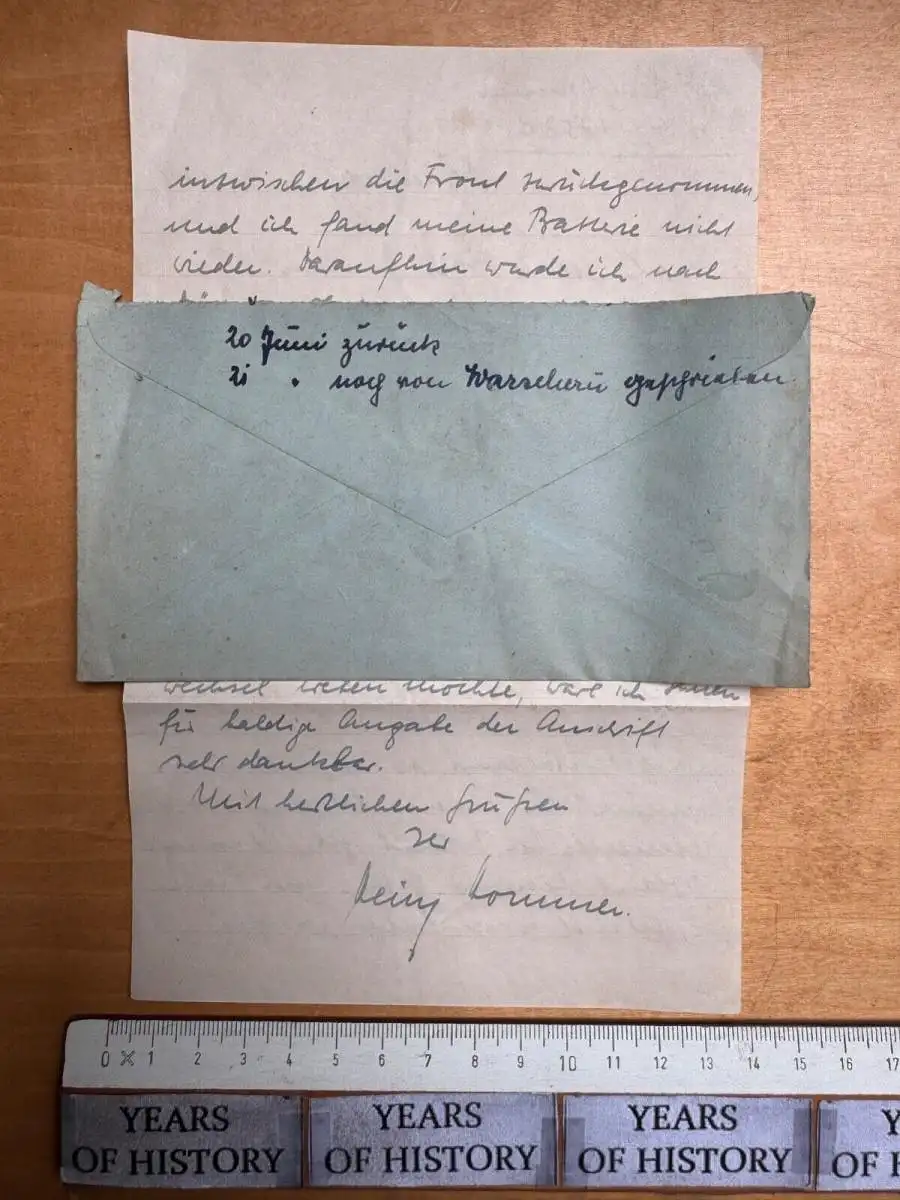 inzwischen die Front zurückgenommen,
und ich fand meine Batterie nicht
wieder. Daraufhin wurde ich nach
20 Juni zurück
21 " noch von Warschau geschrieben.
wechsel treten möchte, wäre ich Ihnen
für baldige Angabe der Anschrift
sehr dankbar.
Mit herzlichen Grüßen
Ihr
Heinz
0 1 2 3 4 5 6 7 8 9 10 11 12 13 14 15 16 17
YEARS OF HISTORY YEARS OF HISTORY YEARS OF HISTORY